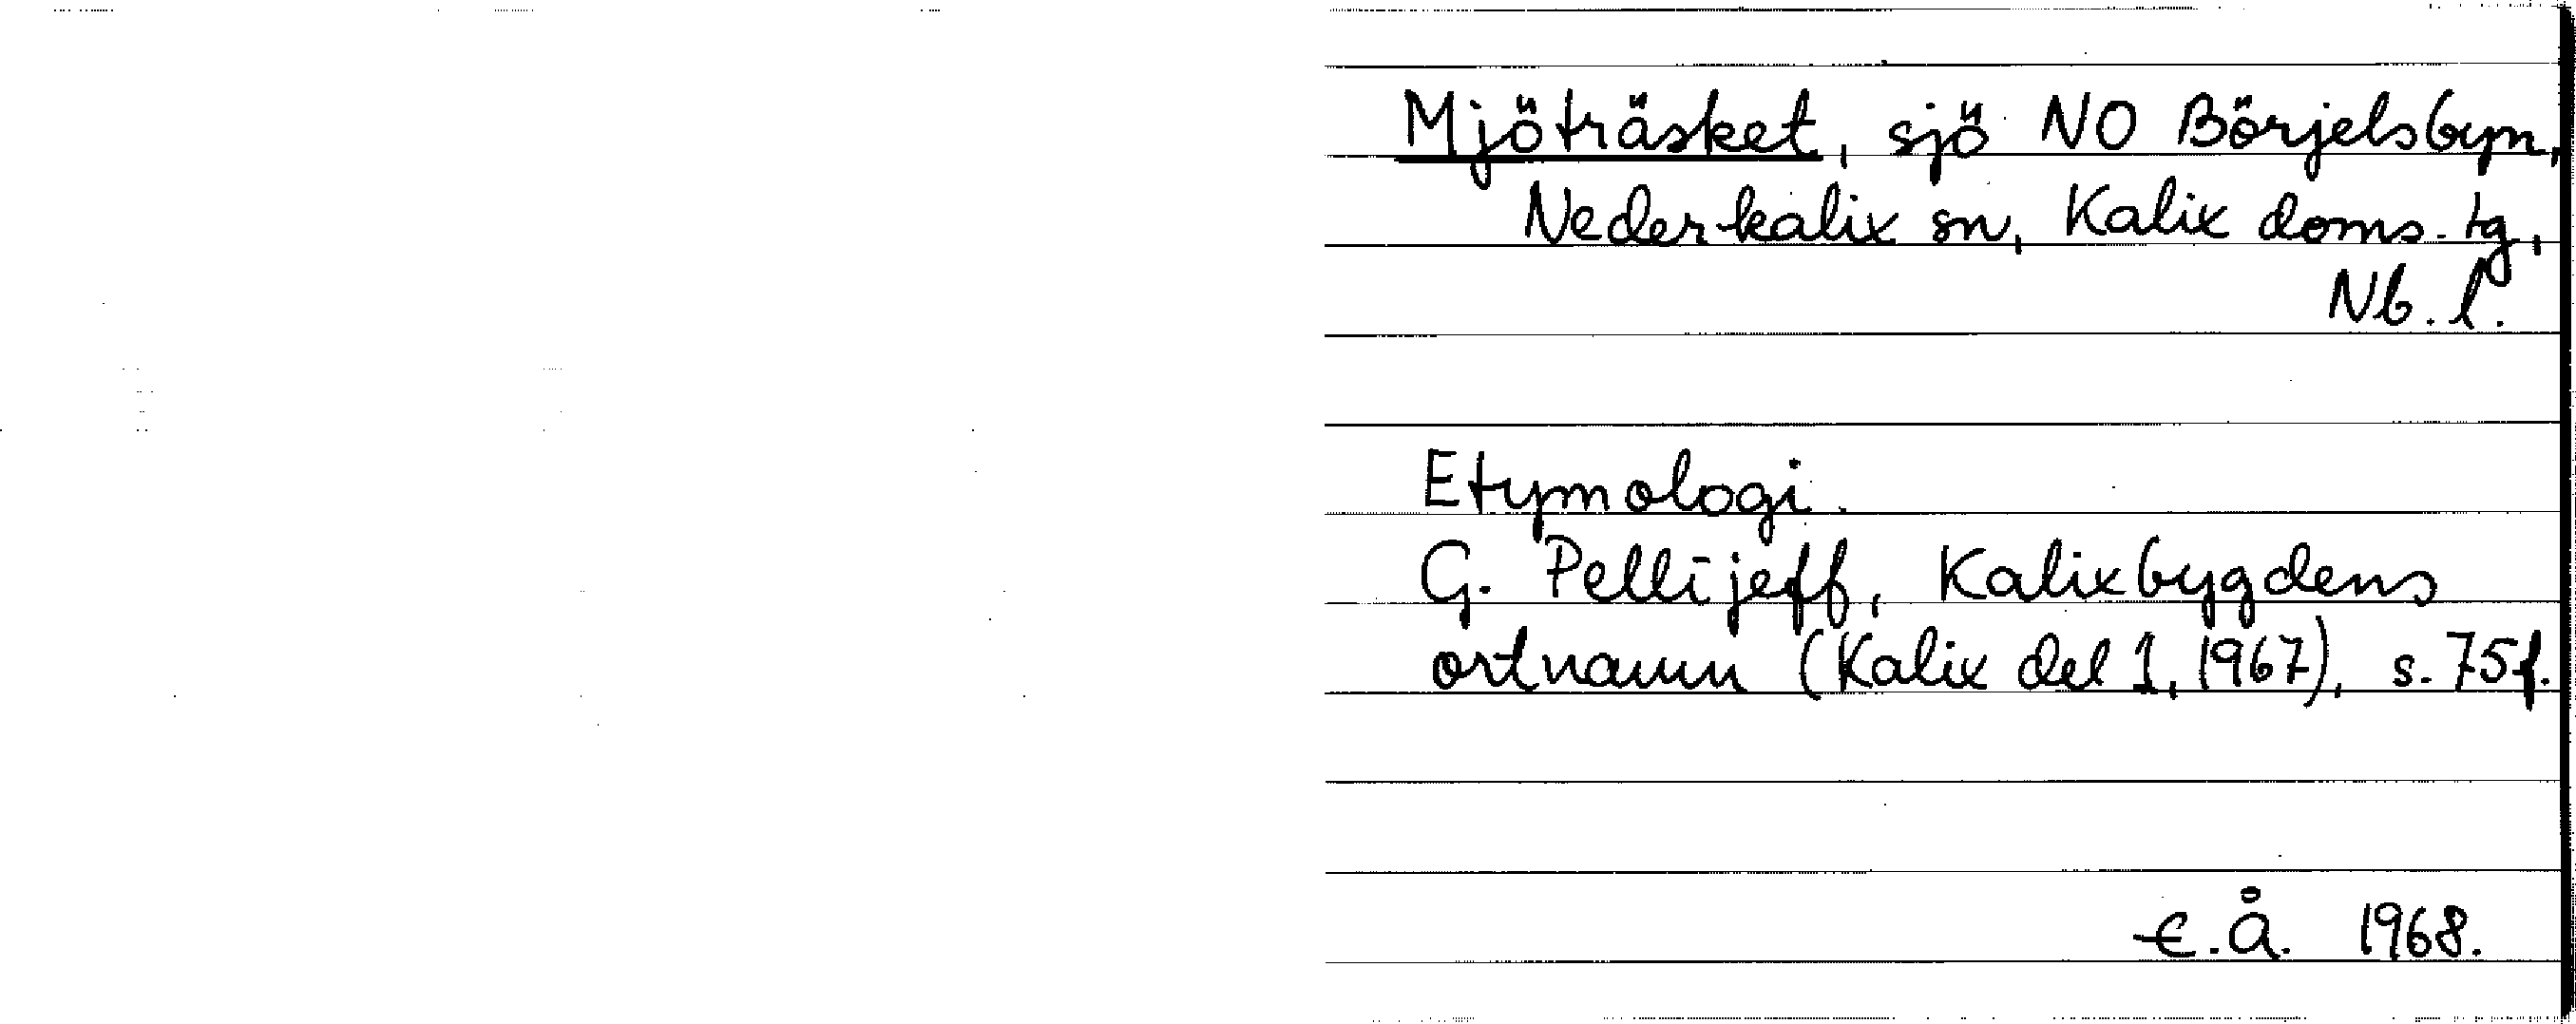 Mjöträsket, sjö NO Börjelsbyn,
Nederkalix sn, Kalix doms.tg,
Nb. l.
Etymologi.
G. Pellijeff, Kalixbygdens
ortnamn (Kalix del 1, 1967), s. 75f.
E.Å. 1968.